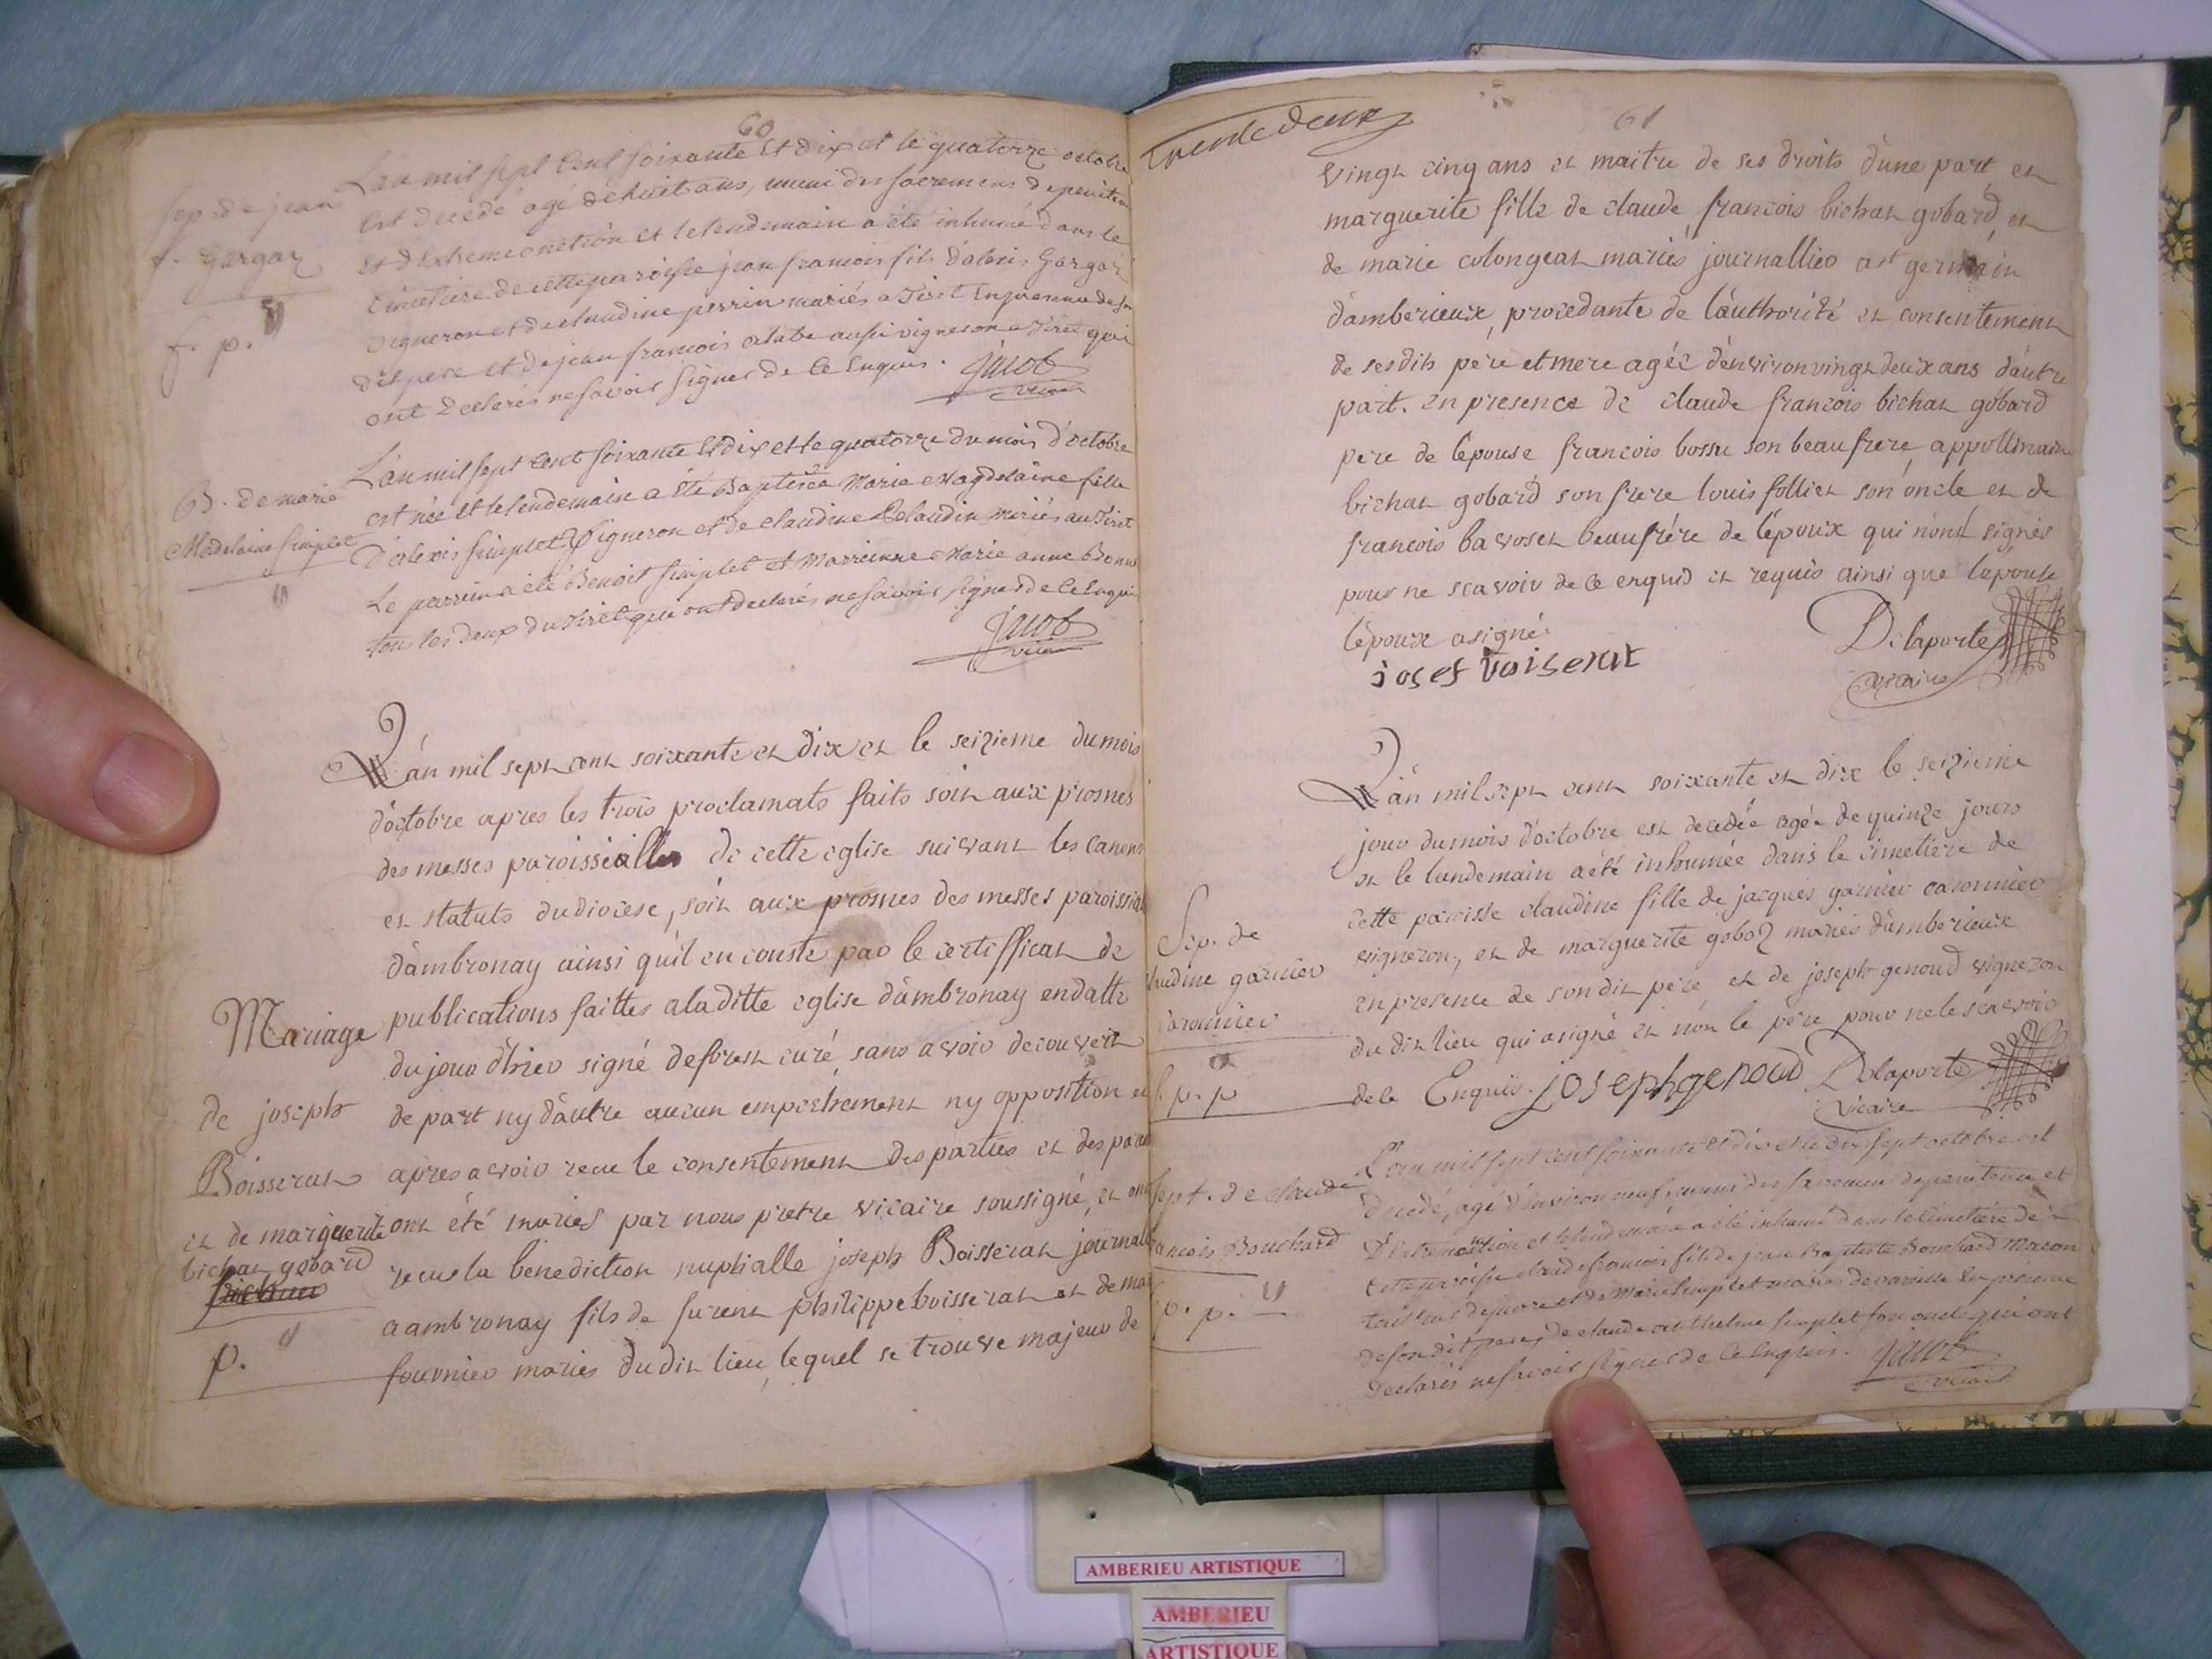 60
Sep. de jean
f. gargar
f. p.
L'an mil sept cent soixante et dix et le quatorze octobre
est decedé agé de huit ans, muni des sacremens de peniten
et d'extremeonction et le lendemain a été inhumé dans le
cimetiere de cette paroisse jean francois fils d'alexis Gargar
vigneron et de claudine perrin mariés a Tiret En presence de son
dit pere et de jean francois aussi vigneron a Tiret qui
ont declarés ne savoir signer de ce Enquis. jacob
vicaire
B. de marie
Madelaine simplet
L'an mil sept cent soixante et dix et le quatorze du mois d'octobre
est née et le lendemain a été Baptisée Marie Magdelaine fille
d'alexis simplet Vigneron et de claudine mariés au Tiret
Le parrein a été Benoit simplet et Marreinne Marie anne
tous les deux du Tiret qui ont declarés ne savoir signer de ce Enquis
jacob
vicaire
Mariage
de joseph
Boisserat
et de marguerite
bichat gobard
p.
L'an mil sept cent soixante et dix et le seizieme du mois
d'octobre apres les trois proclamats faits soit aux prosnes
des messes paroissialles de cette eglise suivant les canons
et statuts du diocese, soit aux prosnes des messes paroissial
d'ambronay ainsi qu'il en conste par le certifficat de
publications faittes a laditte eglise d'ambronay en datte
du jour d'hier signé deforest curé, sans avoir decouvert
de part ny d'autre aucun empeschement ny opposition et
apres avoir receu le consentement des parties et des paren
ont été mariés par nous pretre vicaire soussigné, et ont
receu la benediction nuptialle joseph Boisserat journall
a ambronay fils de furent philippe boisserat et de mar
fournier mariés du dit lieu, lequel se trouve majeur de
trente deux
61
vingt cinq ans et maitre de ses droits d'une part et
marguerite fille de claude francois bichat gobard, et
de marie colongeat mariés journallier a st germain
d'amberieux, procedante de l'authorité et consentement
de sesdits père et mere agée d'environ vingt deux ans d'autre
part. en presence de claude francois bichat gobard
pere de l'epouse francois bossu son beau frere, appollinaire
bichat gobard son frere louis follier son oncle et de
francois bavoset beaufrére de l'époux qui n'ont signés
pour ne scavoir de ce enquid et requis ainsi que l'epouse
l'époux a signé.
iosef boiserat
Delaporte
vicaire
Sep. de
claudine garnier
caronnier
f. p. p
L'an mil sept cent soixante et dix le seizieme
jour du mois d'octobre est decedée agée de quinze jours
et le lendemain a été inhumée dans le cimetière de
cette paroisse claudine fille de jacques garnier caronnier
vigneron, et de marguerite goboz mariés d'amberieux
en presence de son dit pere, et de joseph genoud vigneron
du dit lieu qui a signé et non le père pour ne le scavoir
de le Enquis. joseph genoud Delaporte
vicaire
Sept. de claude
francois Bouchard
p. p.
L'an mil sept cent soixante et dix et le dix sept octobre est
decedé, agé d'environ neuf, muni des sacremens de penitence et
d'extremeonction et le lendemain a été inhumé dans le cimetiere de
cette paroisse claude francois fils de jean Baptiste Bouchard Macon
et de Marie simplet mariés de vareille En présence
de son dit pere, de claude anthelme simplet son oncle qui ont
declarés ne savoir signer de ce Enquis. jacob
vicaire
AMBERIEU ARTISTIQUE
AMBERIEU
ARTISTIQUE